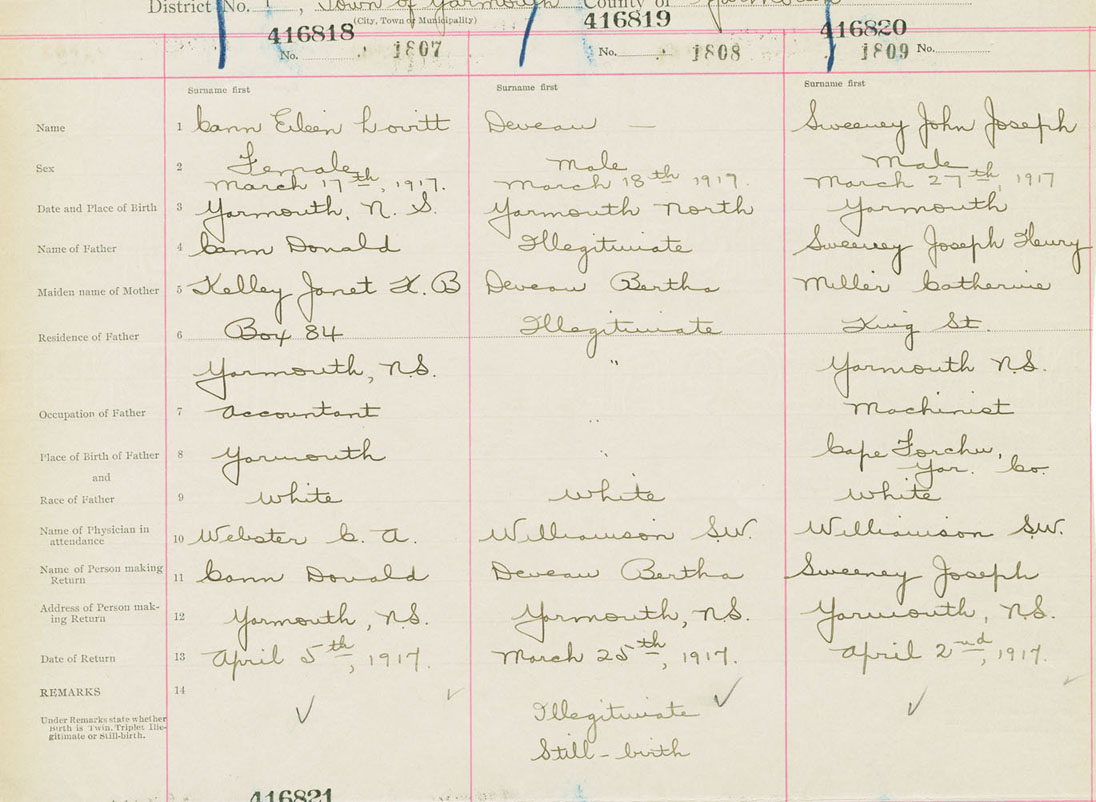 District No. 1, Town of Yarmouth County of Yarmouth
(City, Town or Municipality)
416818 416819 416820
No. 1807 No. 1808 1809 No.
Surname first Surname first Surname first
Name 1 Cann Eileen Lovitt Deveau — Sweeney John Joseph
Sex 2 Female Male Male
March 17th, 1917. March 18th 1917. March 27th, 1917
Date and Place of Birth 3 Yarmouth, N. S. Yarmouth North Yarmouth
Name of Father 4 Cann Donald Illegitimate Sweeney Joseph Henry
Maiden name of Mother 5 Kelley Janet K. B Deveau Bertha Miller Catherine
Residence of Father 6 Box 84 Illegitimate King St.
Yarmouth, N.S. " Yarmouth N.S.
Occupation of Father 7 Accountant " Machinist
Place of Birth of Father 8 Yarmouth " Cape Forchu,
and Yar. Co.
Race of Father 9 White White White
Name of Physician in attendance 10 Webster C. A. Williamson S.W. Williamson S.W.
Name of Person making Return 11 Cann Donald Deveau Bertha Sweeney Joseph
Address of Person making Return 12 Yarmouth, N.S. Yarmouth, N.S. Yarmouth, N.S.
Date of Return 13 April 5th, 1917. March 25th, 1917. April 2nd, 1917.
REMARKS 14 ✓ Illegitimate ✓ ✓
Under Remarks state whether
Birth is Twin, Triplet, Ille-
gitimate or Still-birth.
Still-birth
416821